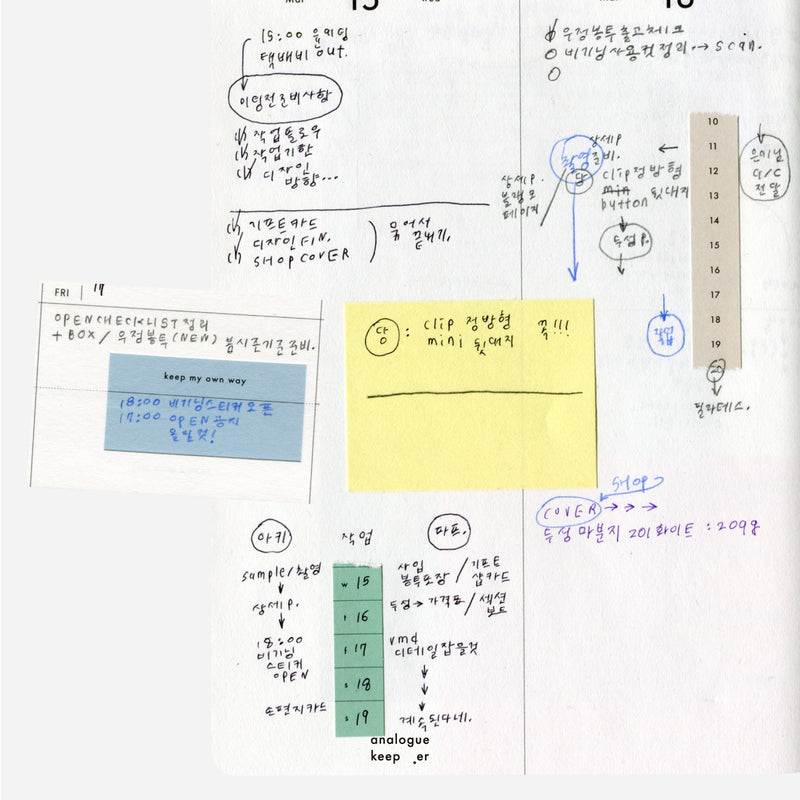 15
16
15:00 윤미팅
택배비 out.
미팅전준비사항
작업플로우
작업기한
디자인
방향...
기프트카드
디자인FIN.
SHOP COVER
묶어서
끝내기.
우정봉투출고체크
비기닝사용컷정리 → scan.
10
11
12
13
14
15
16
17
18
19
20
촬영
상세P
준비.
당
clip정방형
min 뒷대지
button
두성P.
상세P.
페이지
전달
작업
필라테스.
FRI 17
OPEN CHECKLIST정리
+ BOX / 우정봉투(NEW) 봄시즌기준준비.
keep my own way
18:00 비기닝스티커오픈
17:00 OPEN공지
올릴것!
당 : clip 정방형 꼭!!!
mini 뒷대지
SHOP
COVER → → →
두성 마분지 201화이트 : 209g
아키
작업
파프.
sample/촬영
상세P.
18:00
비기닝
스티커
OPEN
손편지카드
W 15
t 16
f 17
s 18
s 19
사입
봉투포장 / 기프트
샵카드
두성 → 가격표 / 섹션
보드
vmd
디테일잡을것
계속된다네.
analogue
keep .er